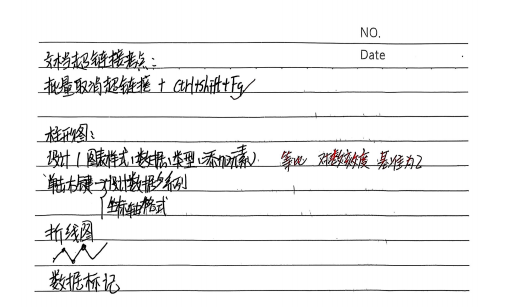 NO.
Date
文档超链接考点：
批量取消超链接 + Ctrl+Shift+F9
柱形图：
设计（图表样式、数据、类型、添加元素） 等比 对数刻度 基准为2
单击右键→设计数据系列
坐标轴格式
折线图
数据标记